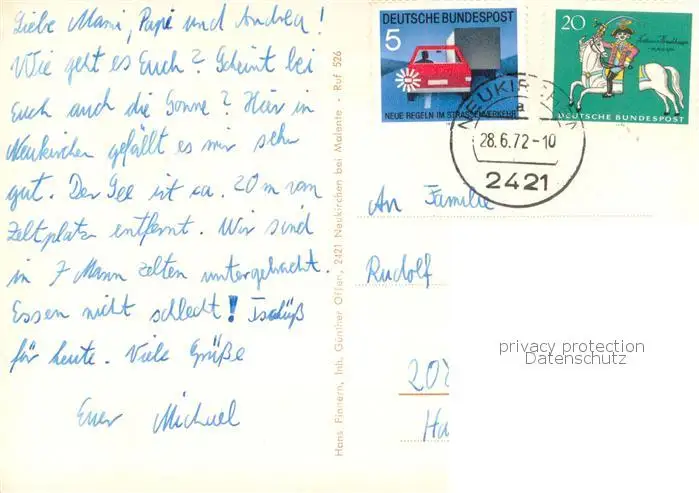 Liebe Mami, Papi und Andrea!
Wie geht es Euch? Scheint bei
Euch auch die Sonne? Hier in
Neukirchen gefällt es mir sehr
gut. Der See ist ca. 20 m vom
Zeltplatz entfernt. Wir sind
in 7 Mann Zelten untergebracht.
Essen nicht schlecht! Tschüß
für heute. Viele Grüße
Euer Michael
Hans Finnern, Inh. Günther Offen, 2421 Neukirchen bei Malente · Ruf 526
DEUTSCHE BUNDESPOST
5
NEUE REGELN IM STRASSENVERKEHR
20
DEUTSCHE BUNDESPOST
28.6.72-10
a
2421
An Familie
Rudolf
privacy protection
Datenschutz
20
Ha